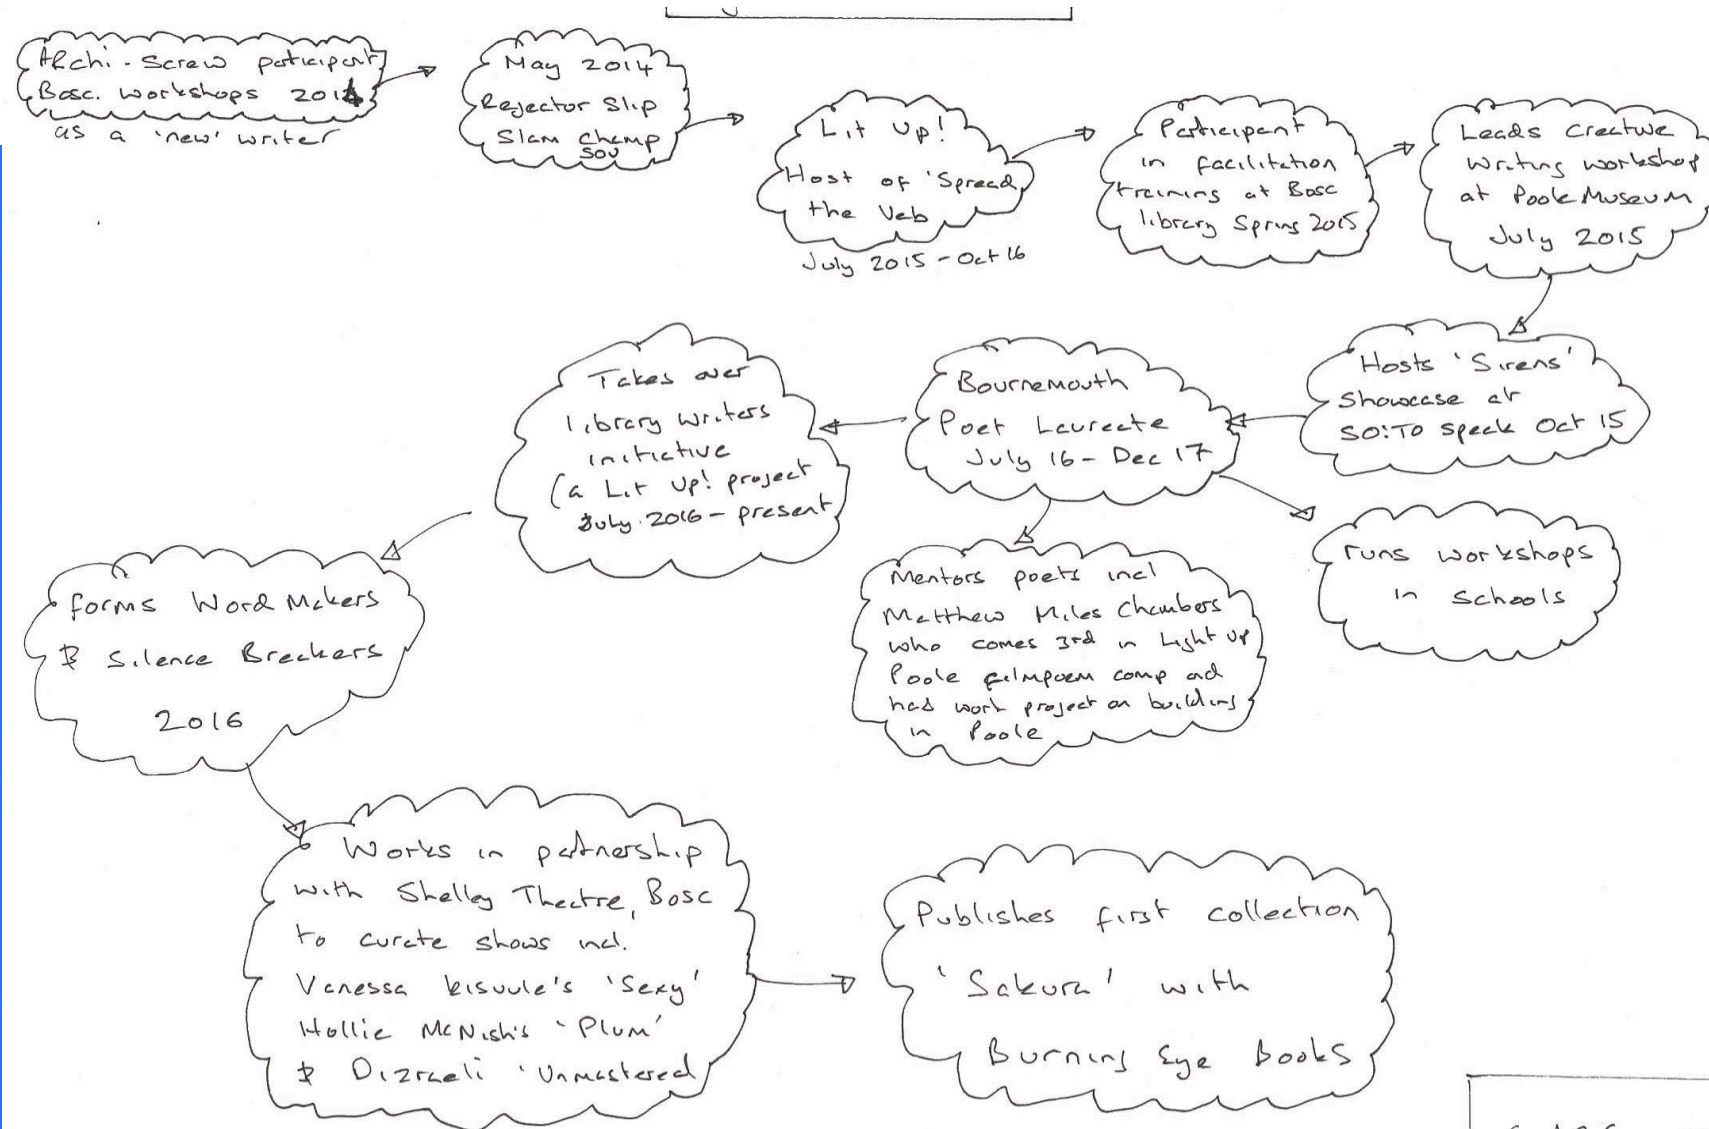 Archi-Screw participant
Bosc. workshops 2014
as a 'new' writer
May 2014
Rejector Slip
Slam Champ
SOU
Lit Up!
Host of 'Spread
the Veb
July 2015 - Oct 16
Participant
in facilitation
training at Bosc
library Spring 2015
Leads Creative
Writing workshop
at Poole Museum
July 2015
Hosts 'Sirens'
Showcase at
SO:To Speak Oct 15
Bournemouth
Poet Laureate
July 16 - Dec 17
Takes over
library writers
initiative
(a Lit Up! project
July 2016 - present
runs workshops
in schools
Mentors poets incl
Matthew Miles Chambers
who comes 3rd in Light Up
Poole filmpoem comp and
had work project on building
in Poole
forms Word Makers
& Silence Breakers
2016
Works in partnership
with Shelley Theatre, Bosc
to curate shows incl.
Vanessa Kisuule's 'Sexy'
Hollie McNish's 'Plum'
& Dizraeli 'Unmastered
Publishes first collection
'Sakura' with
Burning Eye Books